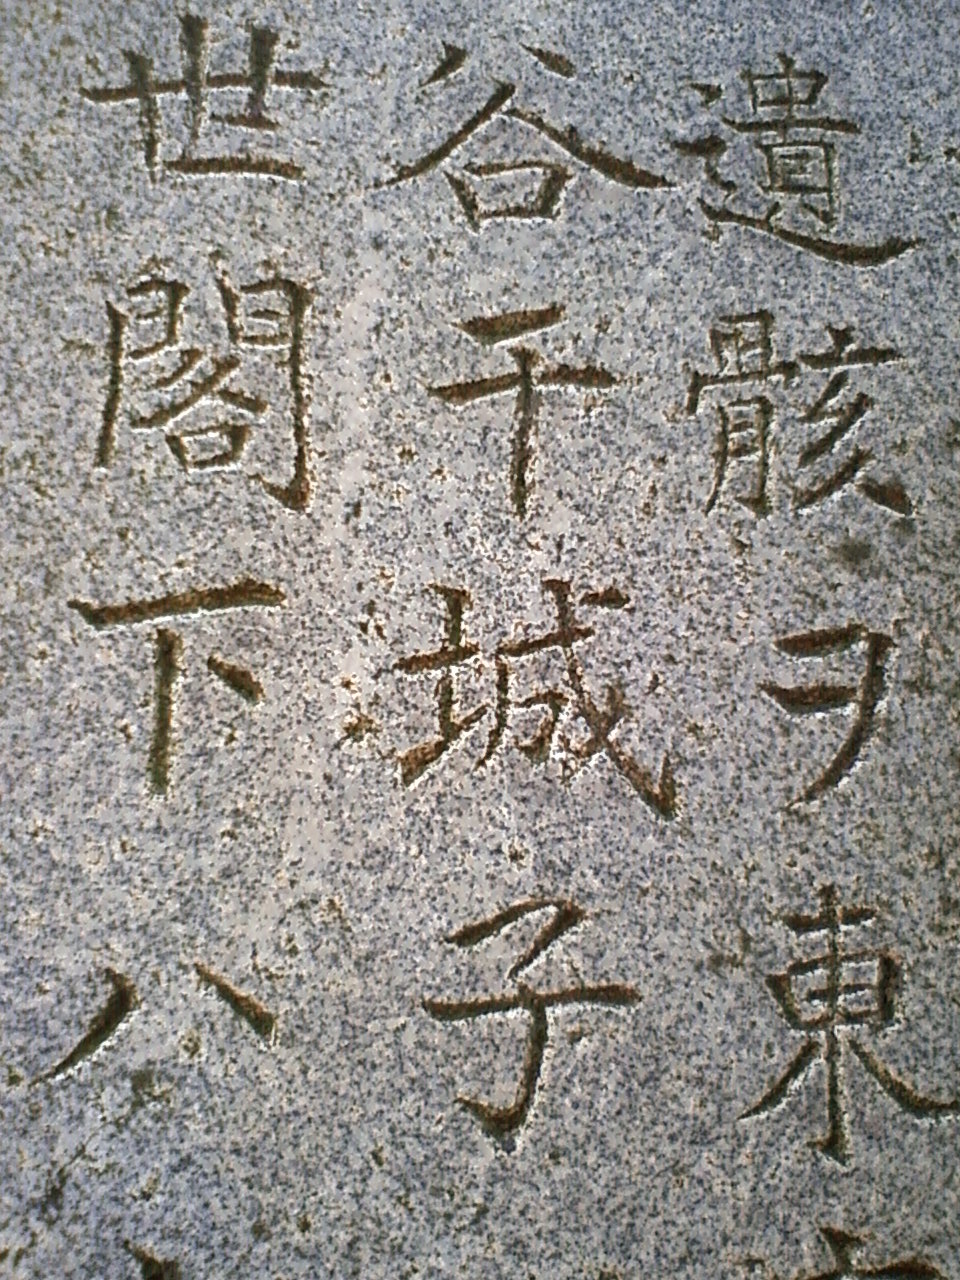 遺骸ヲ東
谷干城子
世閣下ハ